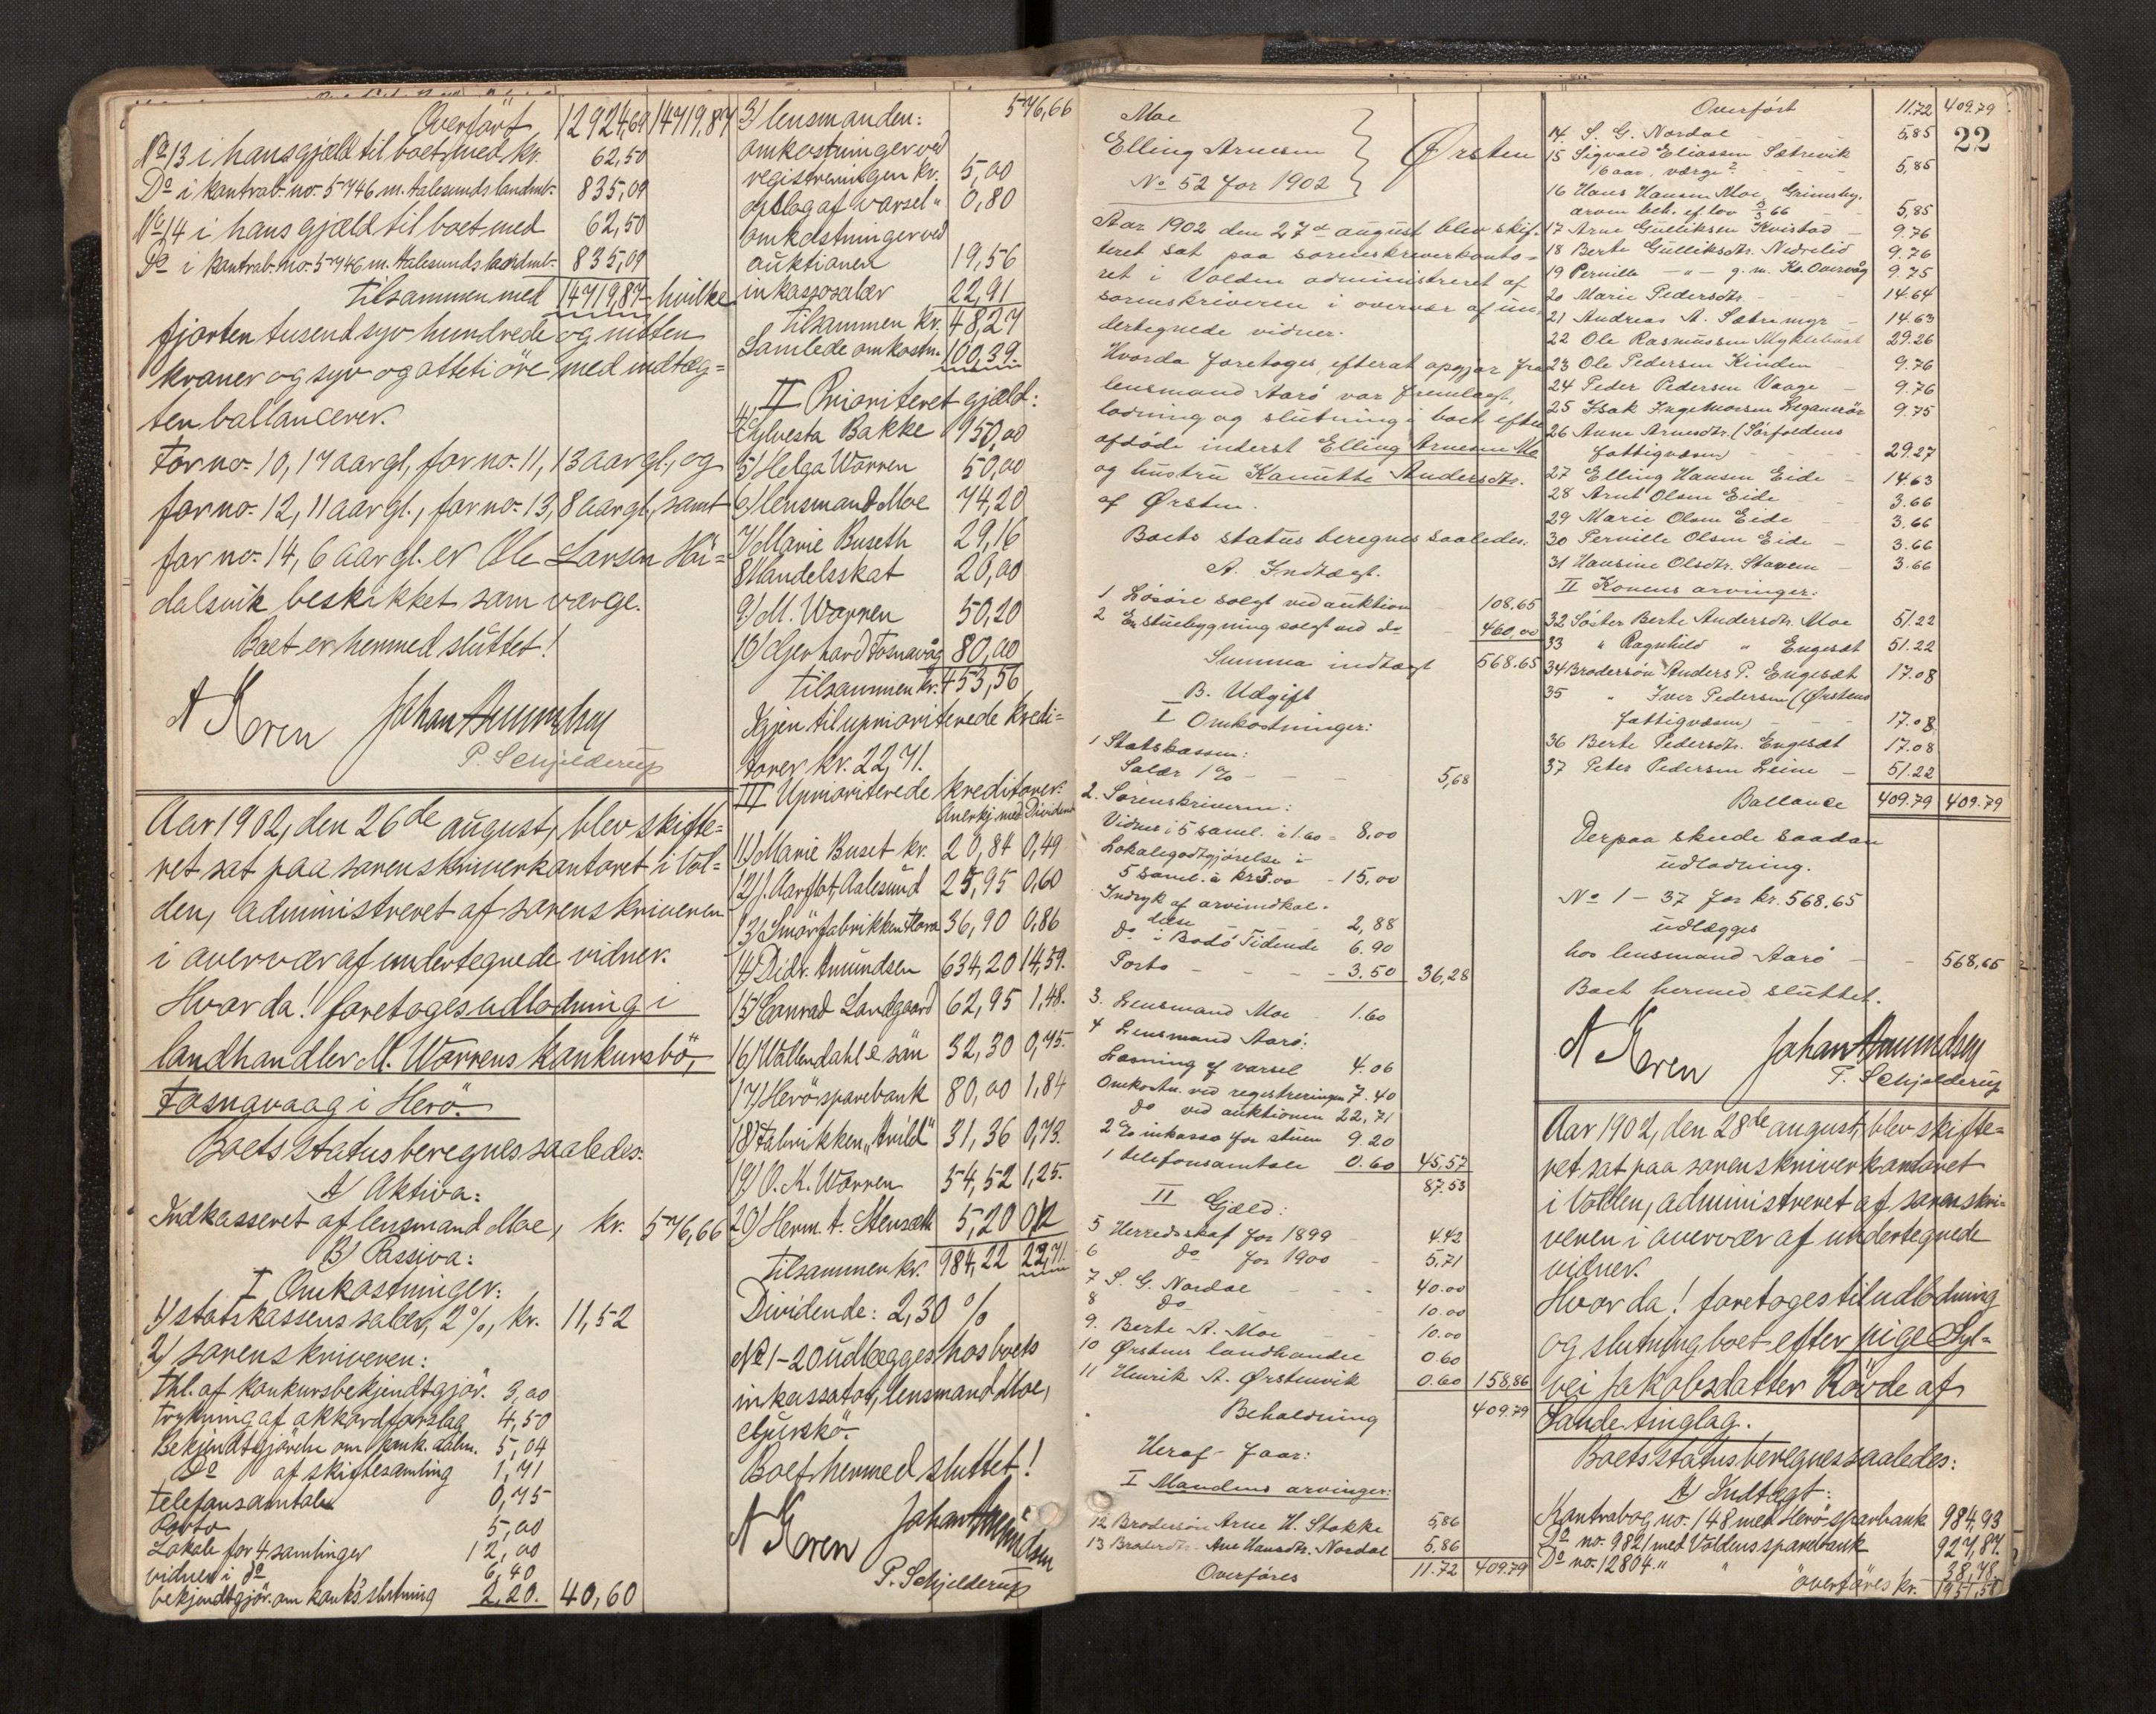 Overført 12924,69 14719,87
No 13 i hans gjæld til boet med kr. 62,50
Do i kontrab. no. 5746 m. Aalesunds landmb. 835,09
No 14 i hans gjæld til boet med 62,50
Do i kontrab. no. 5746 m. Aalesunds landmb. 835,09
Tilsammen med 14719,87 hvilke
fjorten tusend syv hundrede og nitten
kroner og syv og otteti öre med indtæg=
ten ballancerer.
For no. 10, 17 aar gl., for no. 11, 13 aar gl., og
for no. 12, 11 aar gl., for no. 13, 8 aar gl., samt
for no. 14, 6 aar gl. er Ole Larsen Høi=
dalsvik beskikket som værge.
Boet er hermed sluttet!
A Koren Johan Amundsen
P. Schjelderup
Aar 1902, den 26de august, blev skifte=
ret sat paa sorenskriverkontoret i Vol=
den, administreret af sorenskriveren
i overvær af undertegnede vidner.
Hvorda! foretoges udlodning i
landhandler M. Warrens konkursbö,
Fosnavaag i Herö.
Boets status beregnes saaledes:
A) Aktiva:
Indkasseret af lensmand Moe, kr. 576,66
B) Passiva:
I Omkostninger:
1) statskassens salær, 2%, kr. 11,52
2) sorenskriveren:
Thl. af konkursbekjendtgjør. 3,00
Trykning af akkordforslag 4,50
Bekjendtgjörelse om konk. aabn. 5,04
Do af skiftesamling 1,71
Telefonsamtale 0,75
Porto 5,00
Lokale for 4 samlinger 12,00
vidner i do 6,40
bekjendtgjör. om konk's slutning 2,20. 40,60
3) lensmanden: 576,66
omkostninger ved
registreringen kr. 5,00
opslag af varsel " 0,80
omkostninger ved
auktionen 19,56
inkassosalær 22,91
Tilsammen kr. 48,27
Samlede omkostn. 100,39.
II Prioriteret gjæld:
4) Sylvesta Bakke 150,00
5) Helga Warren 50,00
6) lensmand Moe 74,20
7) Marie Buseth 29,16
8) Handelsskat 20,00
9) M. Warren 50,20
10) Gerhard Fosnavåg 80,00
Tilsammen kr. 453,56
Igjen til uprioriterede kredi=
torer kr. 22,71.
III Uprioriterede kreditorer:
Anerkj. med Dividende
11) Marie Buset kr. 20,84 0,49
12) J. Aarflot, Aalesund 25,95 0,60
13) Smörfabrikken Flora 36,90 0,86
14) Didr. Amundsen 634,20 14,59.
15) Conrad Landgaard 62,95 1,48.
16) Wallendahl & sön 32,30 0,75.
17) Herö sparebank 80,00 1,84
18) Fabrikken "Arild" 31,36 0,73.
19) O. K. Warren 54,52 1,25.
20) Herm. A. Stensæth 5,20 0,12
Tilsammen kr. 984,22 22,71
Dividende: 2,30 %
No 1-20 udlægges hos boets
inkassator, lensmand Moe,
Gurskö.
Boet hermed sluttet!
A Koren Johan Amundsen
P. Schjelderup
Moe
Elling Arnesen Ørsten
No 52 for 1902
Aar 1902 den 27de august blev skif-
teret sat paa sorenskriverkonto-
ret i Volden administreret af
sorenskriveren i overvær af un-
dertegnede vidner.
Hvorda foretoges, efterat opgjør fra
lensmand Aarö var fremlagt,
lodning og slutning i boet efter
afdöde inderst Elling Arnesen Mo
og hustru Kanutte Andersdtr.
af Ørsten.
Boets status beregnes saaledes:
A. Indtægt.
1 Løsøre solgt ved auktion - 108.65
2 En stuebygning solgt ved do - 460,00
Summa indtægt 568.65
B. Udgift
I Omkostninger:
1 Statskassen:
Salær 1% - - - 5,68
2. Sorenskriveren:
Vidner i 5 saml. à 1.60 = 8,00
Lokalegodtgjørelse i
5 saml. à kr 3.00 - 15,00
Indryk af arvindkal-
delse - - 2,88
do i Bodö Tidende 6.90
Porto - - - - 3.50 36,28
3. Lensmand Moe - 1.60
4 Lensmand Aarö:
Læsning af varsel 4.06
Omkostn. ved registreringen 7.40
do ved auktionen 22,71
2% inkasso for stuen 9.20
1 telefonsamtale 0.60 45,57
87.53
II Gjæld:
5 Herredsskat for 1899 - 4.42
6 do for 1900 - 5,71
7 S. G. Nordal - - - 40.00
8 do - - - 10.00
9. Berte A. Moe - - 10.00
10 Ørstens landhandel 0.60
11 Henrik A. Ørstenvik 0.60 158,86
Beholdning 409.79
Heraf faar:
I Mandens arvinger:
12 Brodersön Arne H. Stokke 5,86
13 Broderdtr. Ane Hansdtr. Nordal 5.86
Overføres 11.72 409.79
22
Overført 11.72 409.79
14. S. G. Nordal - - - 5,85
15 Sigvald Eliassen Sætrevik
16 aar, værge? - - - 5,85
16 Hans Hansen Moe, Grimsby.
arven beh. ef. lov 3/3 66 - 5,85
17 Arne Gulliksen Kvistad - 9.76
18 Berte Gulliksdtr. Nedrelid 9.76
19 Pernille - " - g. m. Kr. Overvåg 9.75
20 Marie Pedersdtr. - - - 14.64
21 Andreas A. Sætremyr - 14.63
22 Ole Rasmussen Myklebust 29.26
23 Ole Pedersen Kinden - 9.76
24 Peder Pedersen Vaage - 9.76
25 Isak Ingebriktsen Leganerör 9.75
26 Anne Arnesdtr. (Sörfoldens
fattigvæsen) - - - 29.27
27 Elling Hansen Eide - 14.63
28 Arnt Olsen Eide - 3.66
29 Marie Olsen Eide - 3.66
30 Pernille Olsen Eide - 3.66
31 Hansine Olsdtr. Stavem - 3.66
II Konens arvinger:
32 Söster Berte Andersdtr. Moe 51.22
33 " Ragnhild " Engeset 51.22
34 Brodersön Anders P. Engeset 17.08
35 " Iver Pedersen (Ørstens
fattigvæsen) - - - 17.08
36 Berte Pedersdtr. Engeset 17.08
37 Peter Pedersen Leine - 51.22
Ballance 409.79 409.79
Derpaa skede saadan
udlodning.
No 1 - 37 for kr. 568.65
udlægges
hos lensmand Aarö - - 568,65
Boet hermed sluttet.
A Koren Johan Amundsen
P. Schjelderup
Aar 1902, den 28de august, blev skifte=
ret sat paa sorenskriverkontoret
i Volden, administreret af sorenskri=
veren i overvær af undertegnede
vidner.
Hvorda! foretoges til udlodning
og slutning boet efter pige Syl=
vei Jakobsdatter Rövde af
Sande tinglag.
Boets status beregnes saaledes:
A) Indtægt:
Kontrabog no. 148 med Herö sparebank 984,93
Do no. 9821 med Voldens sparebank 927,87.
Do no. 12804. " " 38,78.
overføres kr. 1951,58